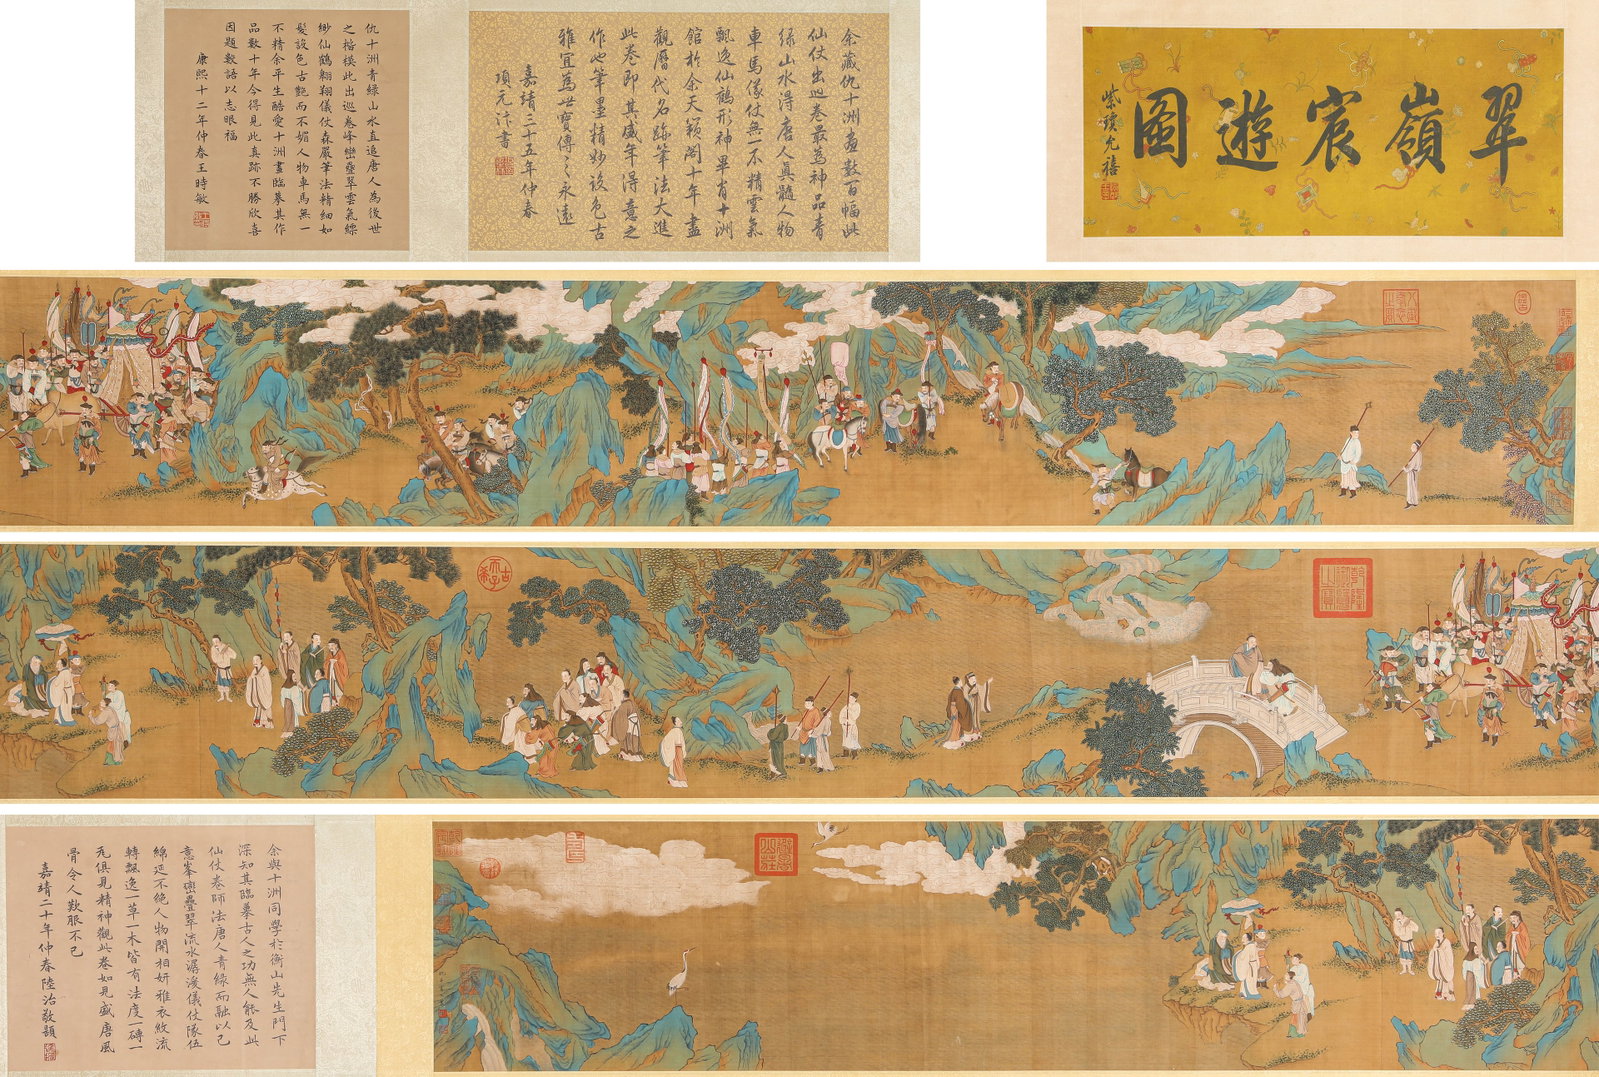 翠嶺宸遊圖
紫瓊允禧
余藏仇十洲畫數百幅此
仙仗出巡卷最為神品青
綠山水得唐人真髓人物
車馬儀仗無一不精雲氣
飄逸仙鶴形神畢肖十洲
館於余天籟閣十年盡
觀曆代名跡筆法大進
此卷即其盛年得意之
作也筆墨精妙設色古
雅宜為世寶傳之永遠
嘉靖三十五年仲春
項元汴書
仇十洲青綠山水直追唐人為後世
之楷模此出巡卷峰巒疊翠雲氣縹
緲仙鶴翱翔儀仗森嚴筆法精細如
髮設色古艷而不媚人物車馬無一
不精余平生酷愛十洲畫臨摹其作
品數十年今得見此真跡不勝欣喜
因題數語以志眼福
康熙十二年仲春王時敏
八徵耄念之寶
乾隆御覽之寶
古希天子
避暑山莊
余與十洲同學於衡山先生門下
深知其臨摹古人之功無人能及此
仙仗卷師法唐人青綠而融以己
意峯巒疊翠流水潺湲儀仗隊伍
綿延不絕人物開相妍雅衣紋流
轉飄逸一草一木皆有法度一磚一
瓦俱見精神觀此卷如見盛唐風
骨令人歎服不已
嘉靖二十年仲春陸治敬題